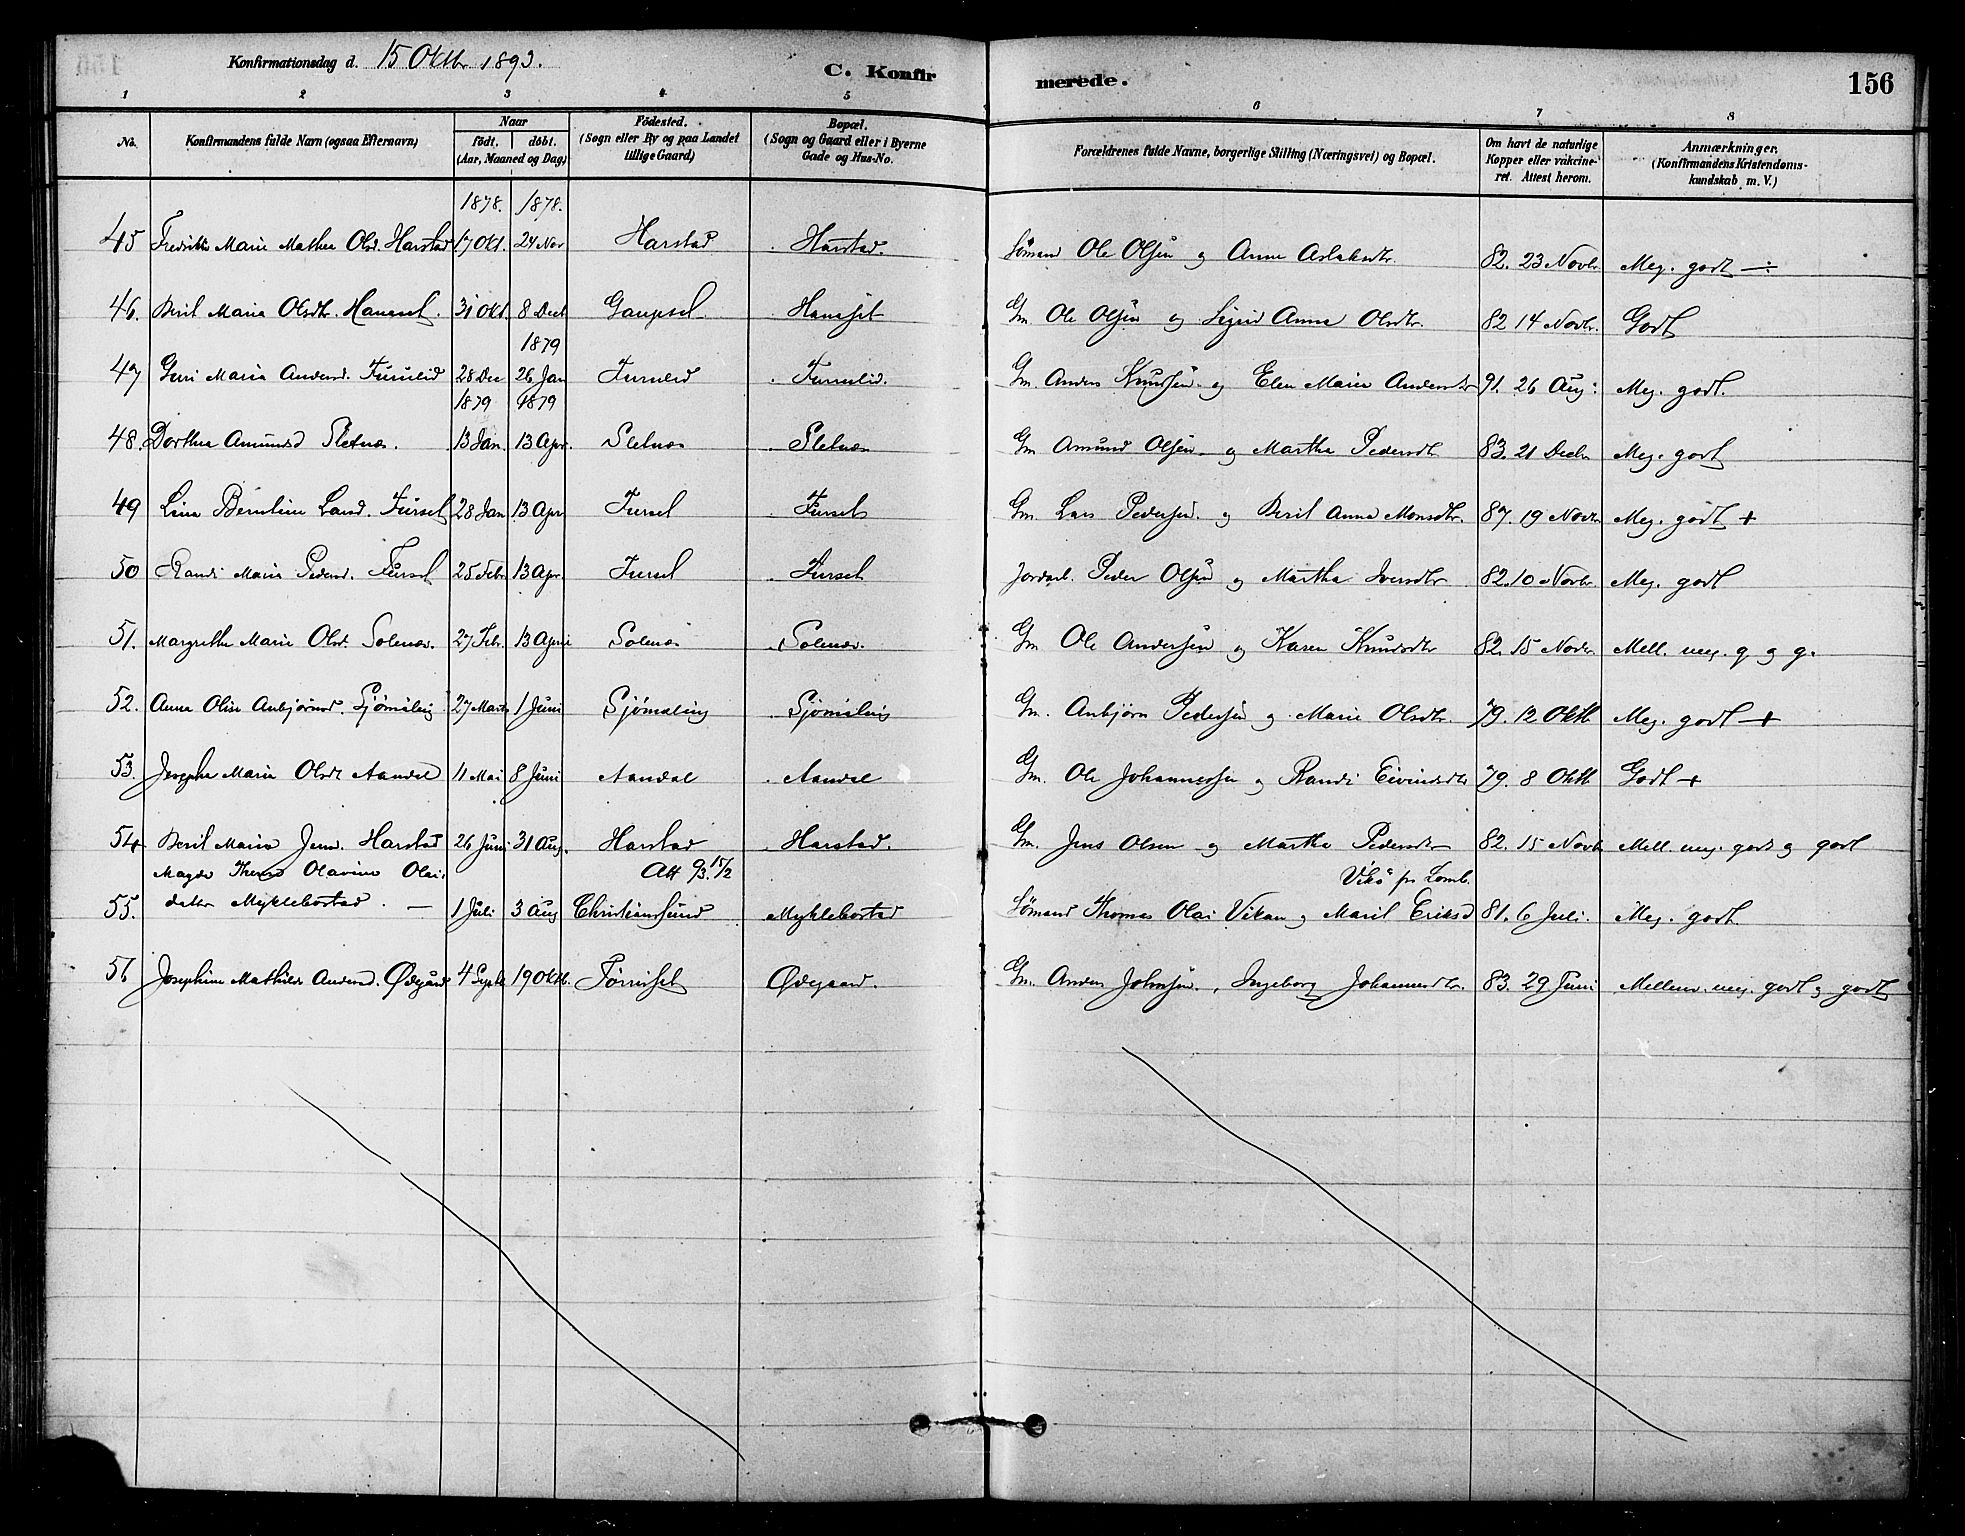 Konfirmationsdag d. 15 Oktbr 1893.
C. Konfirmerede.
156
1 2 3 4 5 6 7 8
No. Konfirmandens fulde Navn (ogsaa Efternavn) Naar födt. döbt. (Aar, Maaned og Dag) Födested. (Sogn eller By og paa Landet tillige Gaard) Bopæl. (Sogn og Gaard eller i Byerne Gade og Hus-No. Forældrenes fulde Navne, borgerlige Stilling (Næringsvei) og Bopæl. Om havt de naturlige Kopper eller vakcineret. Attest herom. Anmærkninger. (Konfirmandens Kristendomskundskab m. V.)
1878. 1878.
45 Fredrikke Marie Mathea Olsd. Harstad 17 Okt. 24 Nov Harstad Harstad. Sømand Ole Olsen og Anne Aslaksdtr 82. 23 Novbr Meg. godt ÷
46. Berit Maria Olsdtr. Hanaset. 31 Okt. 8 Dec Gaupset Hanaset Gm. Ole Olsen og Sigrid Anna Olsdtr. 82 14 Novbr. Godt
1879
47 Guri Maria Andersd. Furulid 28 Dec 26 Jan Furulid Furulid. Gm. Anders Knudsen og Elen Maria Andersdtr 91. 26 Aug: Meg. godt.
1879 1879
48. Dorthea Amundsd Sletnæs. 13 Jan. 13 Apr. Sletnæs Sletnæs Gm Amund Olsen og Martha Pedersdtr 83. 21 Decbr Meg. godt
49 Lina Berntine Larsd. Furset 28 Jan 13 Apr Furset Furset Gm. Lars Pedersen og Berit Anna Monsdtr. 87. 19 Novbr Meg. godt +
50 Randi Maria Pedersd. Furset 25 Febr 13 Apr. Furset Furset Jordarb. Peder Olsen og Martha Iversdtr 82. 10 Novbr Meg. godt
51. Margrethe Marie Olsd. Solenæs. 27 Febr. 13 April Solenæs Solenæs. Gm Ole Andersen og Karen Knudsdtr 82. 15 Novbr. Mell. meg. g og g.
52. Anna Olise Anbjørnsd. Sjømæling 27 Marts 1 Juni Sjømæling Sjømæling Gm. Anbjørn Pedersen og Marie Olsdtr. 79. 12 Oktb Meg. godt +
53. Josepha Maria Olsdt Aandal 11 Mai 8 Juni Aandal Aandal Gm. Ole Johannessen og Randi Eivindsdtr 79. 8 Oktb Godt +
54 Berit Maria Jensd. Harstad 26 Juni 31 Aug. Harstad Harstad. Gm. Jens Olsen og Martha Pedersdtr 82. 15 Novb Mell. meg. godt og godt
Magda Olavine Olai- Att 93. 15/2
55. datter Myklebostad. — 1 Juli 3 Aug Christianssund Myklebostad Sømand Thomas Olai Vikan og Marit Eriksd 81. 6 Juli. Meg. godt
56 Josephine Mathilde Andersd. Ødgård 4 Septb 19 Oktb. Tørriset Ødegaard. Gm. Anders Johnsen, Ingeborg Johannesdtr. 83. 29 Juni Mellem meg. godt og godt